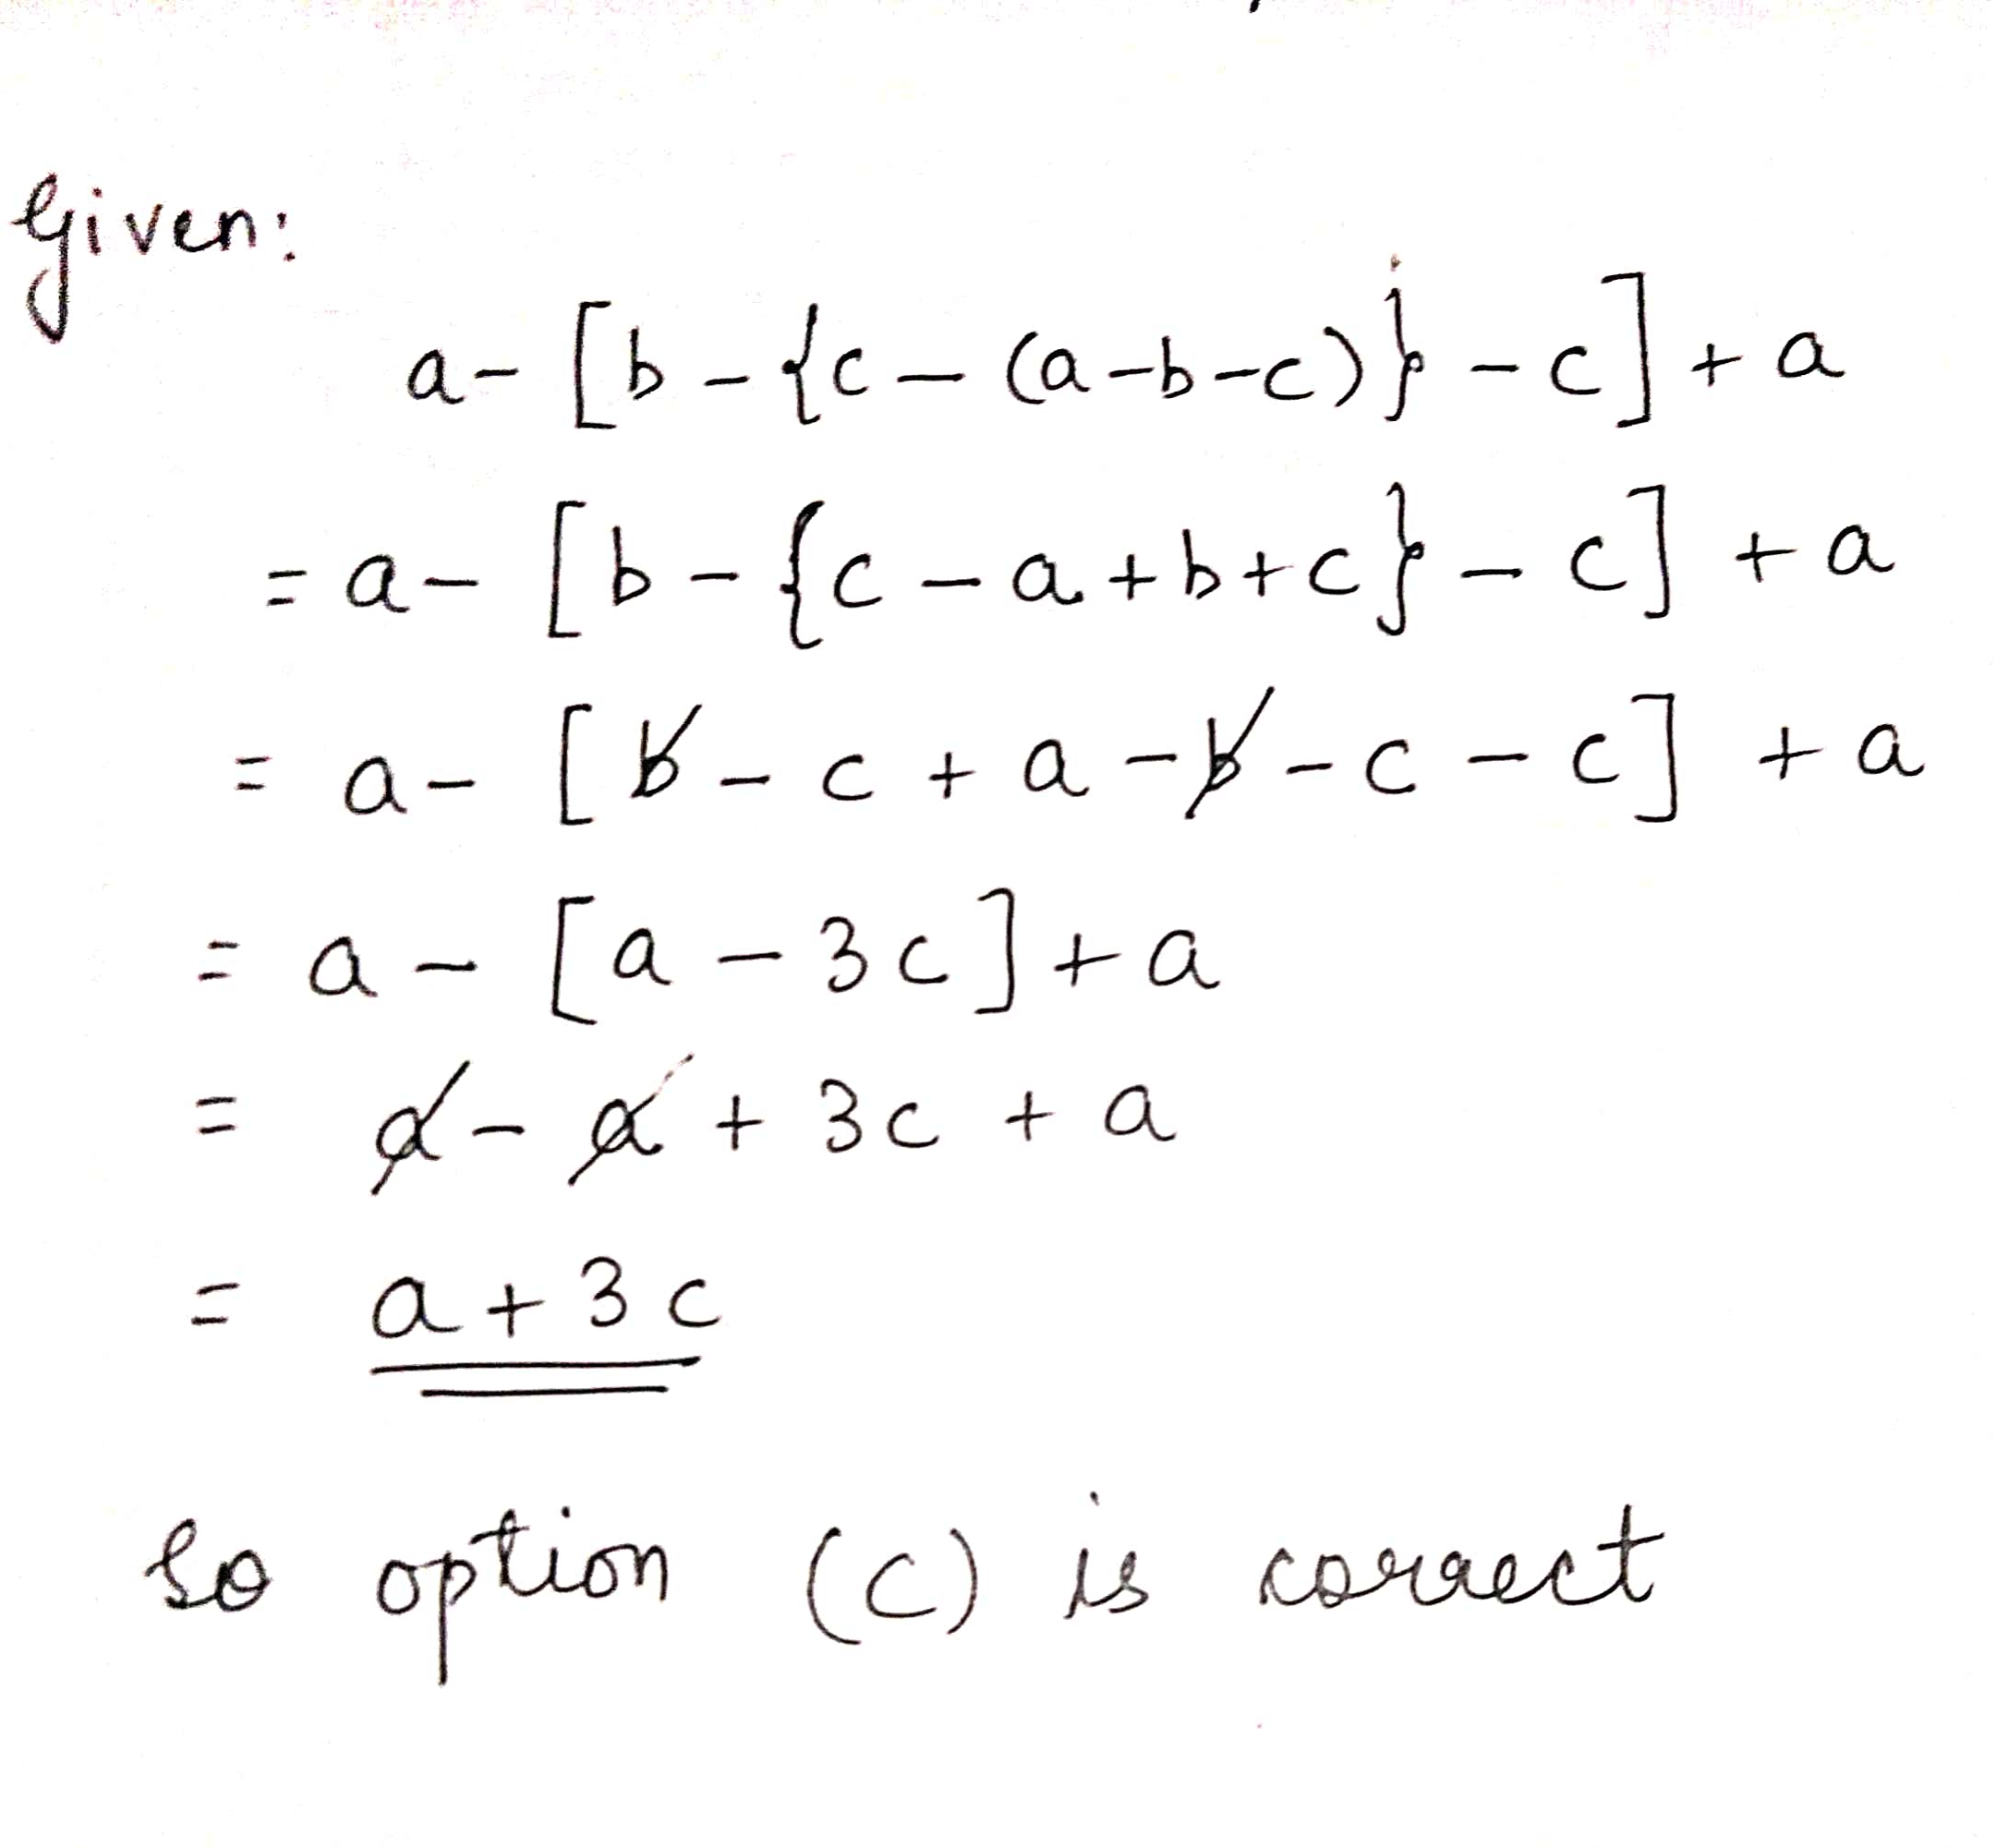 Given:
a - [b - {c - (a-b-c)} - c] + a
= a - [b - {c - a + b + c} - c] + a
= a - [b - c + a - b - c - c] + a
= a - [a - 3c] + a
= a - a + 3c + a
= a + 3c
So option (C) is correct